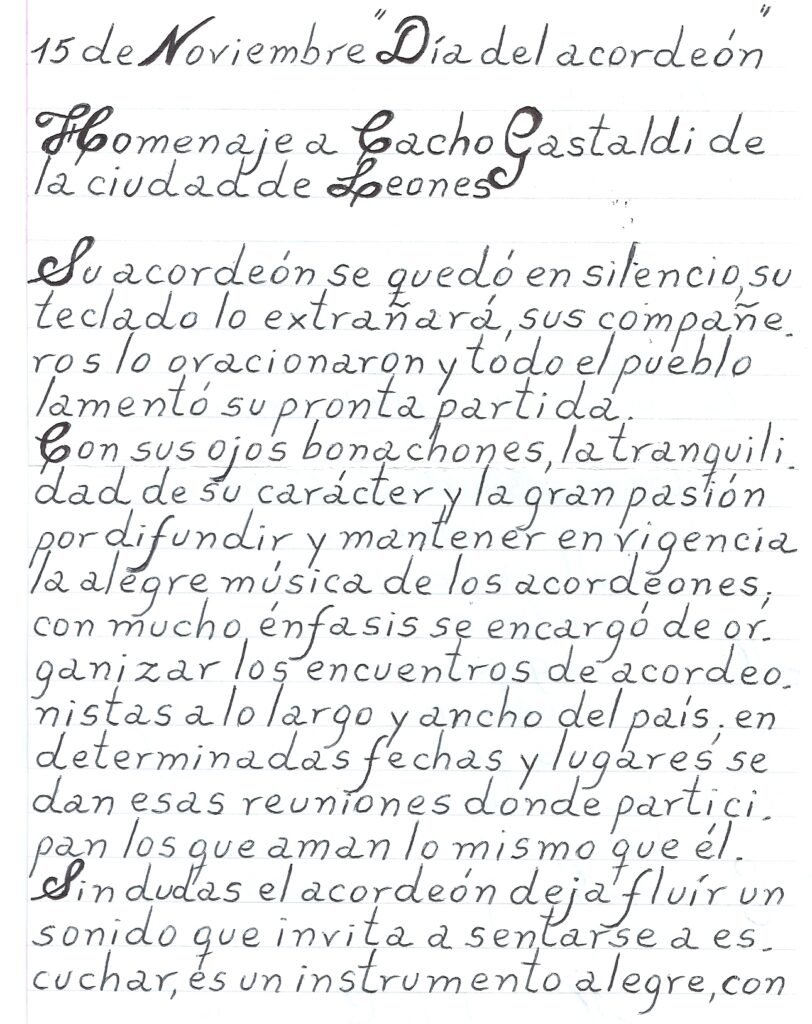 15 de Noviembre "Día del acordeón"
Homenaje a Cacho Gastaldi de
la ciudad de Leones
Su acordeón se quedó en silencio, su
teclado lo extrañará, sus compañe-
ros lo ovacionaron y todo el pueblo
lamentó su pronta partida.
Con sus ojos bonachones, la tranquili-
dad de su carácter y la gran pasión
por difundir y mantener en vigencia
la alegre música de los acordeones;
con mucho énfasis se encargó de or-
ganizar los encuentros de acordeo-
nistas a lo largo y ancho del país; en
determinadas fechas y lugares se
dan esas reuniones donde partici-
pan los que aman lo mismo que él.
Sin dudas el acordeón deja fluír un
sonido que invita a sentarse a es-
cuchar, es un instrumento alegre, con